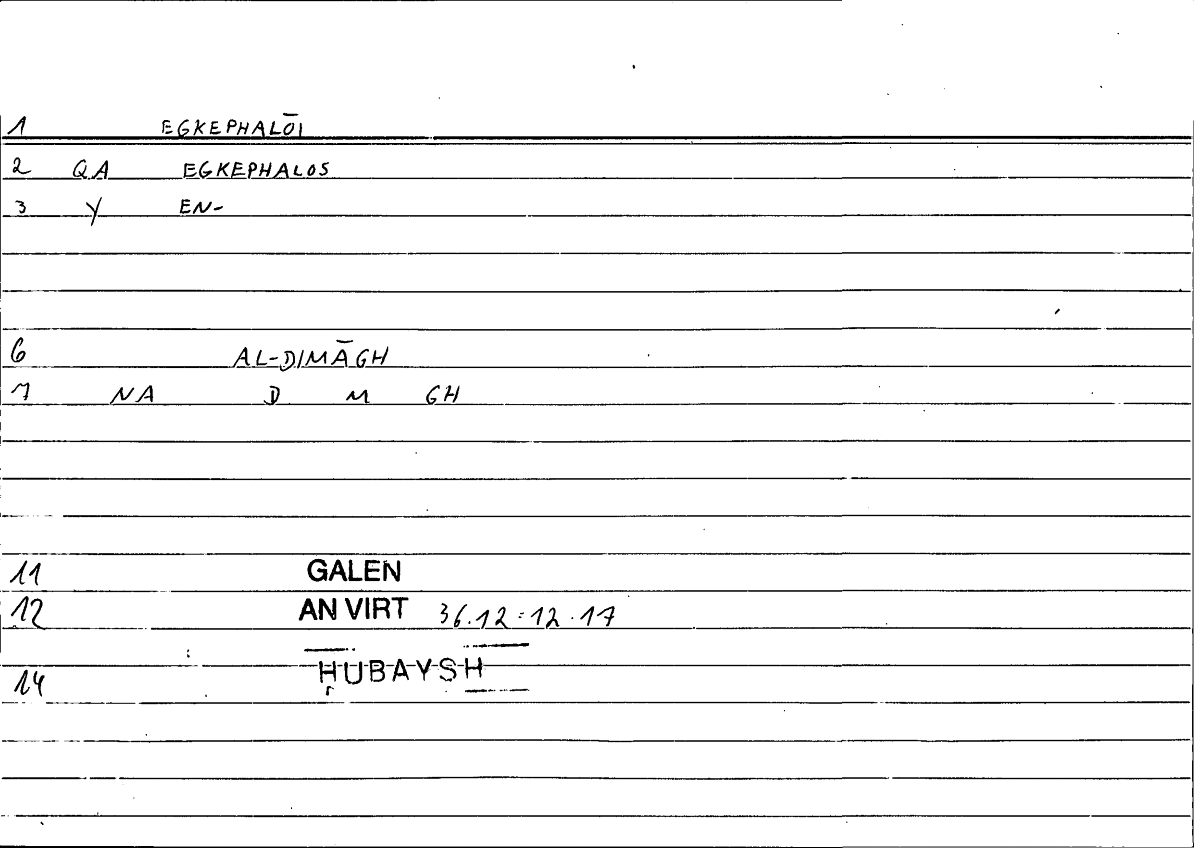 1 EGKEPHALŌI
2 QA EGKEPHALOS
3 Y EN-
6 AL-DIMĀGH
7 NA D M GH
11 GALEN
12 AN VIRT 36.12 : 12.17
14 ḤUBAYSH